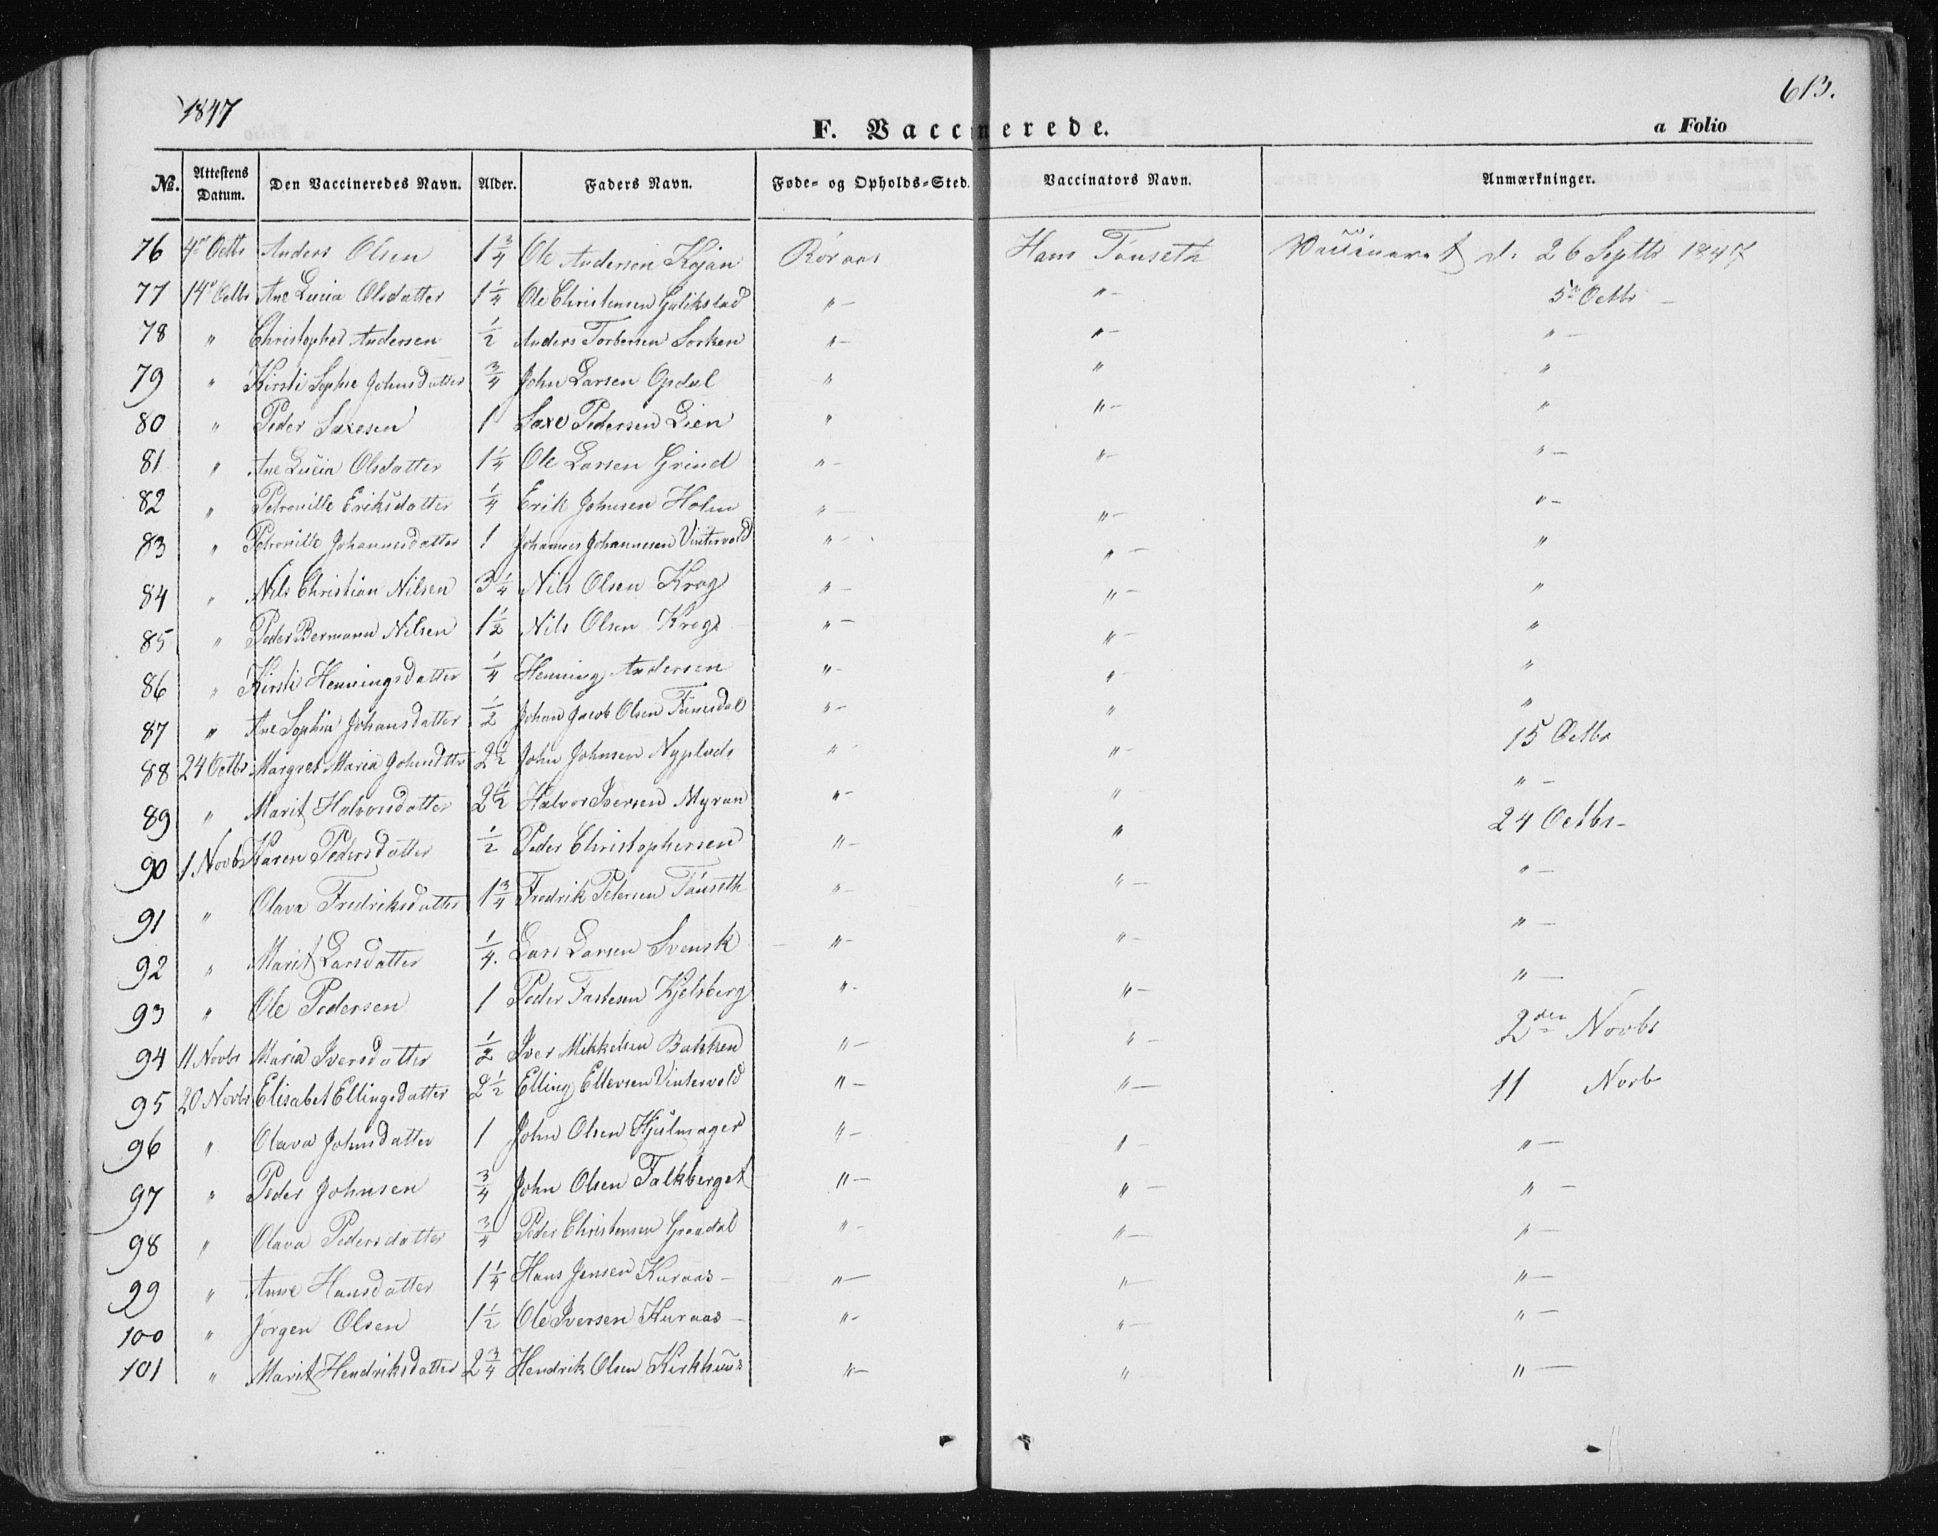 1847
613.
F. Vaccinerede.
a Folio
No. Attestens Datum. Den Vaccineredes Navn. Alder. Faders Navn. Føde- og Opholds-Sted. Vaccinators Navn. Anmærkninger.
76 4de Octb Anders Olsen 1 3/4 Ole Andersen Kojan Röraas Hans Tönseth Vaccineret d. 26 Septbr 1847
77 14de Octbr Ane Lucia Olsdatter 1 1/4 Ole Christensen Galikstad " — " — 5te Octbr —
78 " Christopher Andersen 1/2 Anders Torbersen Sorken " — " — " —
79 " Kirsti Sophie Johnsdatter 3/4 John Larsen Opdal " " — "
80 " Peder Saxesen 1 Saxe Pedersen Lien " " — "
81 " Ane Lucia Olsdatter 1 1/4 Ole Larsen Grind " — " — " —
82 " Petronille Eriksdatter 1/4 Erik Johnsen Holm " — " — " —
83 " Petronille Johannesdatter 1 Johannes Johannesen Vintervold " — " — "
84 " Nils Christian Nilsen 3 1/4 Nils Olsen Krog " — " — "
85 " Peder Bermann Nilsen 1 1/2 Nils Olsen Krog " — " — "
86 " Kirsti Henningsdatter 1/4 Henning Andersen " — " — "
87 " Ane Sophia Johansdatter 1/2 Johan Jacob Olsen Funesdal " — " "
88 24 Octbr Margret Maria Johnsdtter 2 1/2 John Johnsen Nyplads " — " — 15 Octbr
89 " Marit Halvorsdatter 2 1/2 Halvor Iversen Myran " — " — " —
90 1 Novbr Karen Pedersdatter 1/2 Peder Christophersen " — " 24 Octbr —
91 " Olava Fredriksdatter 1 3/4 Fredrik Petersen Tönseth " — " — " —
92 " Marit Larsdatter 1/4. Lars Larsen Svensk " — " — " —
93 " Ole Pedersen 1 Peder Fastesen Kjelsberg " — " — " —
94 11 Novbr Maria Iversdatter 1/2 Iver Mikkelsen Bakken " — " — 2den Novbr
95 20 Novbr Elisabet Ellingsdatter 2 1/2 Elling Ellevsen Vintervold " — " — 11 Novb
96 " Olava Johnsdatter 1 John Olsen Hjulmager " — " — " —
97 " Peder Johnsen 3/4 John Olsen Falkberget " — " — " —
98 " Olava Pedersdatter 3/4 Peder Christensen Graadal " — " — " —
99 " Anne Hansdatter 1 1/4 Hans Jensen Kuraas — " — " — " —
100 " Jörgen Olsen 1 1/2 Ole Iversen Kuraas — " — " — " —
101 " Marit Hendriksdatter 2 3/4 Hendrik Olsen Kirkhuus " — " — " —